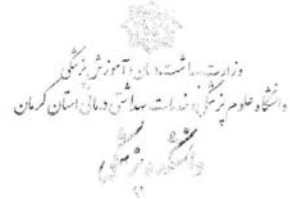 وزارت بهداشت، درمان و آموزش پزشکی
دانشگاه علوم پزشکی و خدمات بهداشتی درمانی استان کرمان
دانشکده پزشکی